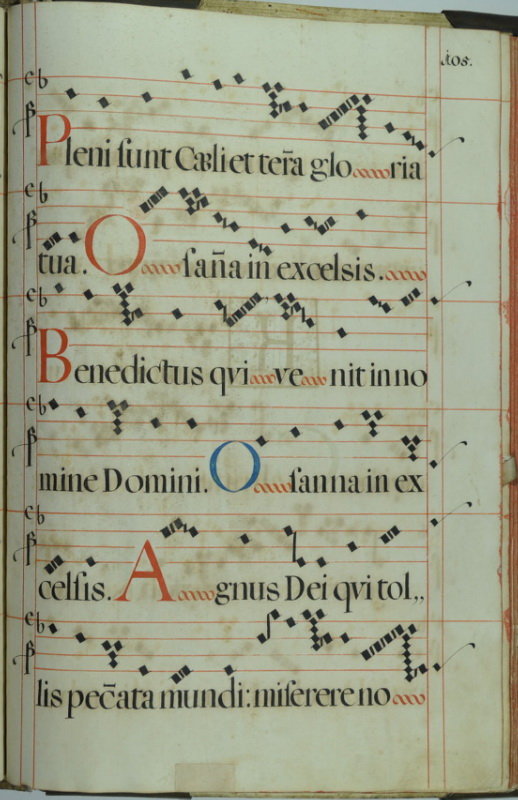 ios.
Pleni sunt Cæli et ter̃a gloria
tua. Osaña in excelsis.
Benedictus qvi venit in no
mine Domini. Osanna in ex
celsis. Agnus Dei qvi tol,,
lis pec̃ata mundi: miserere no